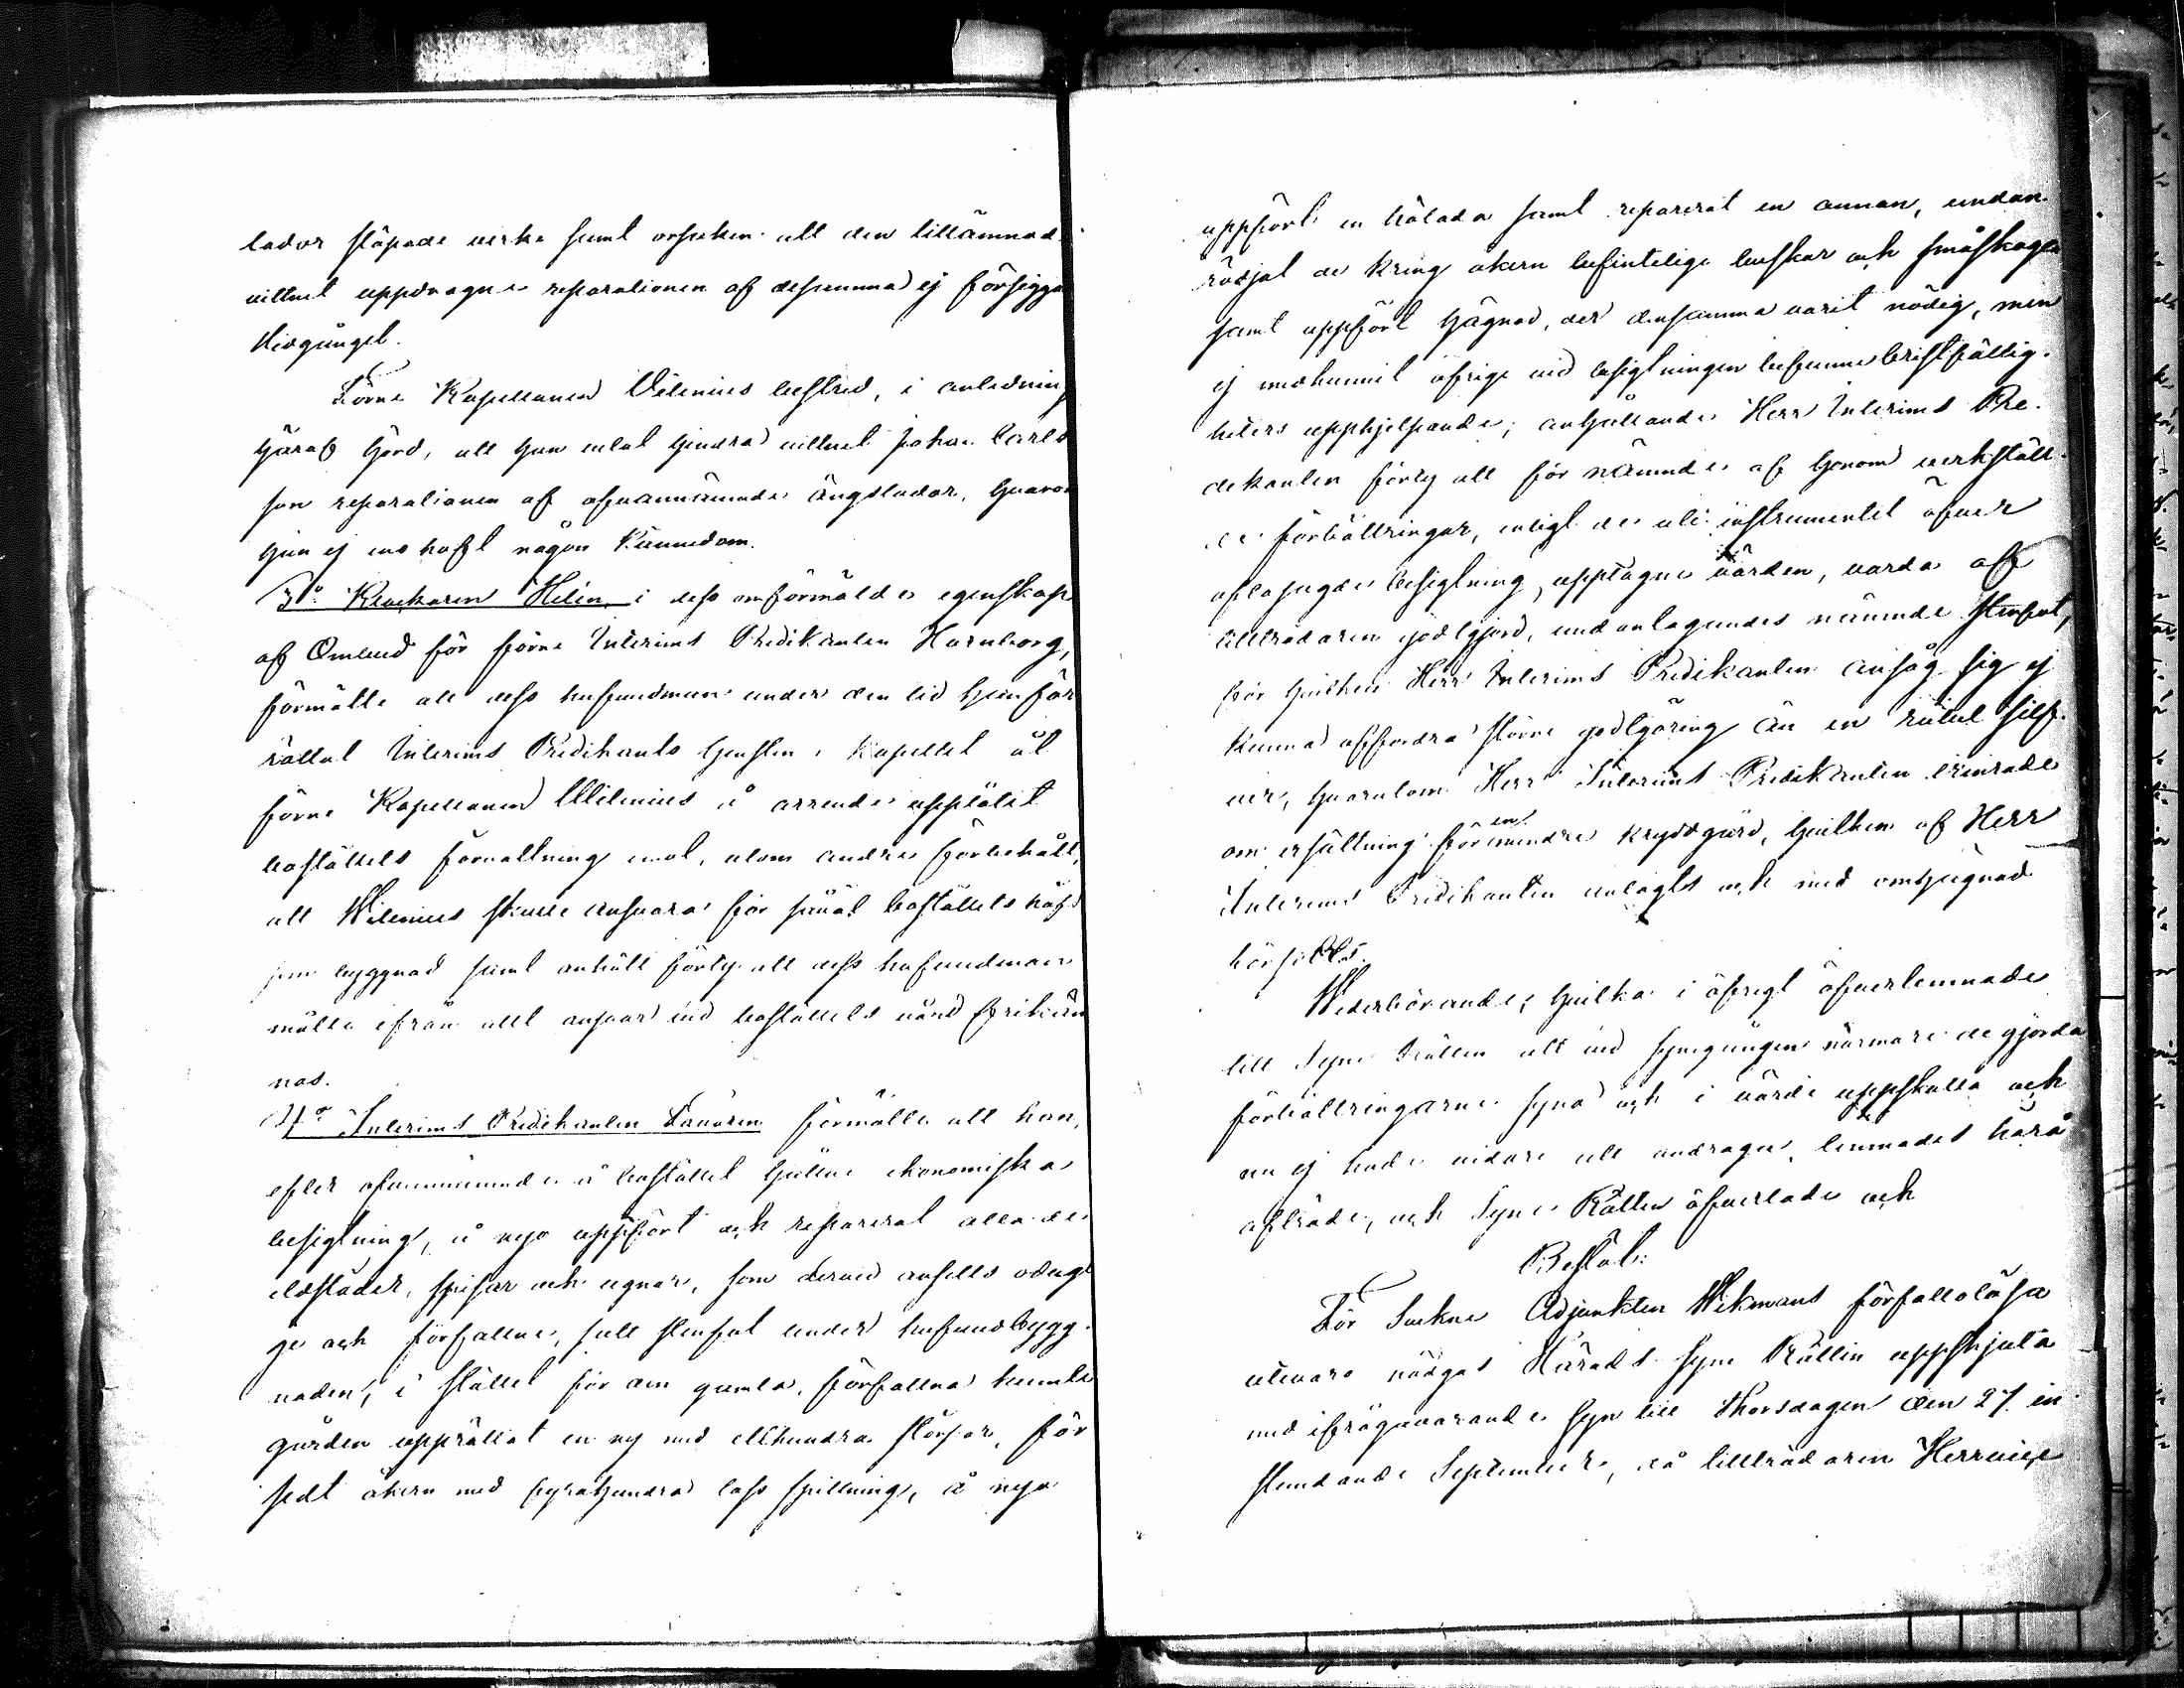 lador släpade virke samt orsaken att den tillämnade
vittnet uppdragne reparationen af desamma ej försiggå
gånget.
Förre Kapellanen Vilenius bestred, i anledning
häraf hörd, att han velat hindra vittnet Johan Carls
son reparationen af ofvannämnde ängslador, hvarom
han ej ens haft någon kännedom.
3:o Klockaren Helin i dess omförmälde egenskap
af Ombud för förre Interims Predikanten Hornborg,
förmälte att dess hufvudman under den tid han för
rättat Interims Predikants tjensten i Kapellet åt
förre Kapellanen Wilenius å arrende upplåtit
boställets förvaltning mot, utom andre förbehåll,
att Wilenius skulle ansvara för såväl boställets häfd
som byggnad samt anhöll förty att dess hufvudman
måtte ifrån allt ansvar vid boställets vård frikän
nas.
4:o Interims Predikanten Favorin förmälte att han,
efter ofvannämnde å bostället hållne ekonomiska
besigtning, å nyo uppfört och reparerat alla de
eldstäder, spisar och ugnar, som dervid ansetts odug
ge och förfallne, satt stenfot under hufvudbygg
naden, i stället för den gamla, förfallna humle
gården upprättat en ny med etthundra störar, för
sedt åkern med fyrahundra lass spillning, å nyo
uppfört en hölada samt reparerat en annan, undan
rödjat de kring åkern befintelige buskar och småskogen
samt uppfört hägnad, der densamma varit nödig, men
ej medhunnit öfrige vid besigtningen befunne bristfällig
heters upphjelpande; anhållande Herr Interims Pre
dikanten förty att för nämnde af honom verkställ
de förbättringar, enligt de uti instrumentet öfver
aflasagde besigtning, upptagne värden, varda af
tillträdaren godtgjord, undantagandes nämnde stenfot,
för hvilken Herr Interims Predikanten ansåg sig ej
kunna affordra större godtgöring än en rubel silf
ver, hvarutom Herr Interims Predikanten erinrade
om ersättning för en mindre kryddgård, hvilken af Herr
Interims Predikanten anlagts och med omhägnad
försetts.
Wederbörande, hvilka i öfrigt öfverlemnade
till Syne Rätten att vid synegången närmare de gjorda
förbättringarne syna och i värde uppskatta och
nu ej hade vidare att andraga, lemnades härå
afträde, och Syne Rätten öfverlade och
Beslöt:
För Sockne Adjunkten Wikmans förfallolösa
utevaro nödgas Härads Syne Rätten uppskjuta
med ifrågavarande syn till Thorsdagen den 27 in
stundande September, då tillträdaren Herr